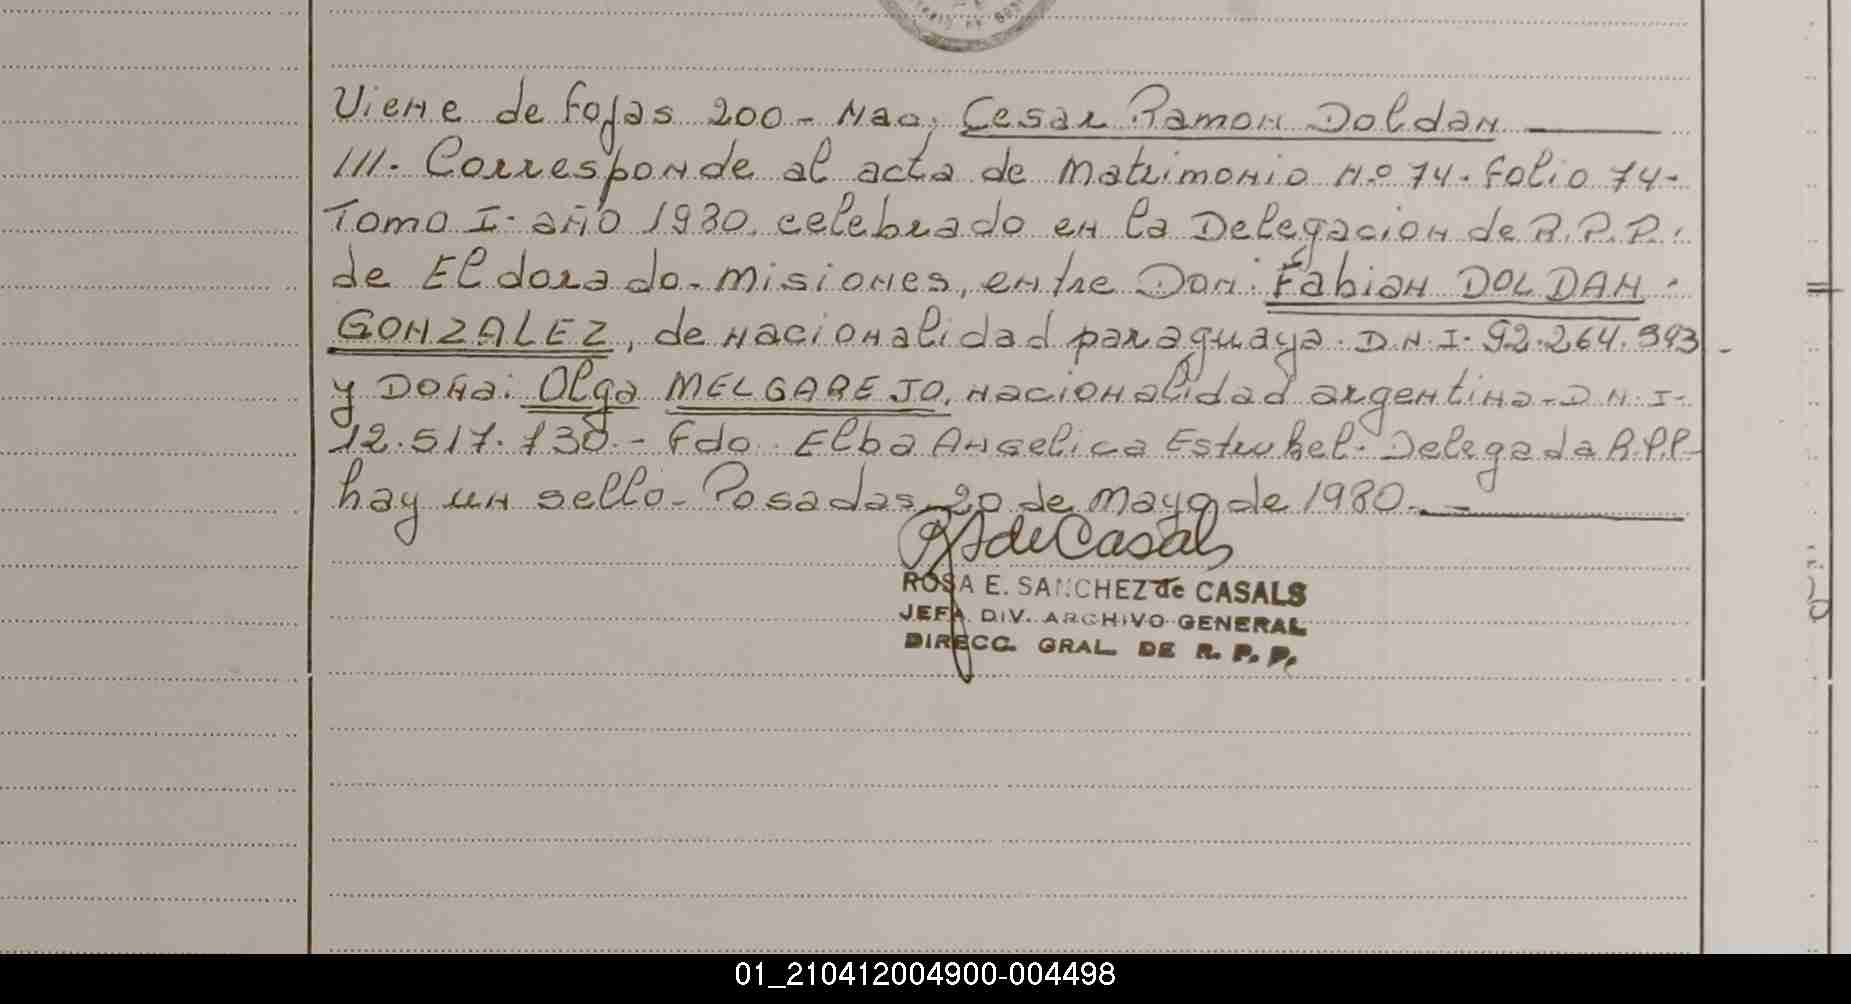 Viene de Fojas 200 - Nac, Cesar Ramon Doldan
///. Corresponde al acta de Matrimonio N.º 74. Folio 74-
Tomo I. año 1980. celebrado en la Delegacion de R.P.P.
de Eldorado - Misiones, entre Don: Fabian DOLDAN
GONZALEZ, de nacionalidad paraguaya. D.N.I. 92.264.393
y Doña: Olga MELGAREJO, nacionalidad argentina - D.N.I-
12.517.130.- Fdo. Elba Angelica Delegada R.P.P-
hay un sello - Posadas, 20 de Mayo de 1980.
R de Casals
ROSA E. SANCHEZ de CASALS
JEFA DIV. ARCHIVO GENERAL
DIRECC. GRAL. DE R. P. P.
01_210412004900-004498